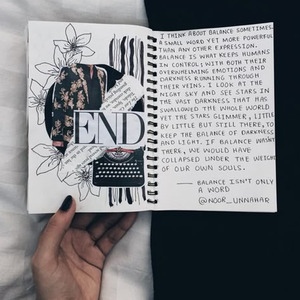 END
I THINK ABOUT BALANCE SOMETIMES.
A SMALL WORD YET MORE POWERFUL
THAN ANY OTHER EXPRESSION.
BALANCE IS WHAT KEEPS HUMANS
IN CONTROL; WITH BOTH THEIR
OVERWHELMING EMOTIONS AND
DARKNESS RUNNING THROUGH
THEIR VEINS. I LOOK AT THE
NIGHT SKY AND SEE STARS IN
THE VAST DARKNESS THAT HAS
SWALLOWED THE WHOLE SKY
YET THE STARS GLIMMER, LITTLE
BY LITTLE BUT STILL THERE, TO
KEEP THE BALANCE OF DARKNESS
AND LIGHT. IF BALANCE WASN'T
THERE, WE WOULD HAVE
COLLAPSED UNDER THE WEIGHT
OF OUR OWN SOULS.
— BALANCE ISN'T ONLY
A WORD
@NOOR_UNNAHAR